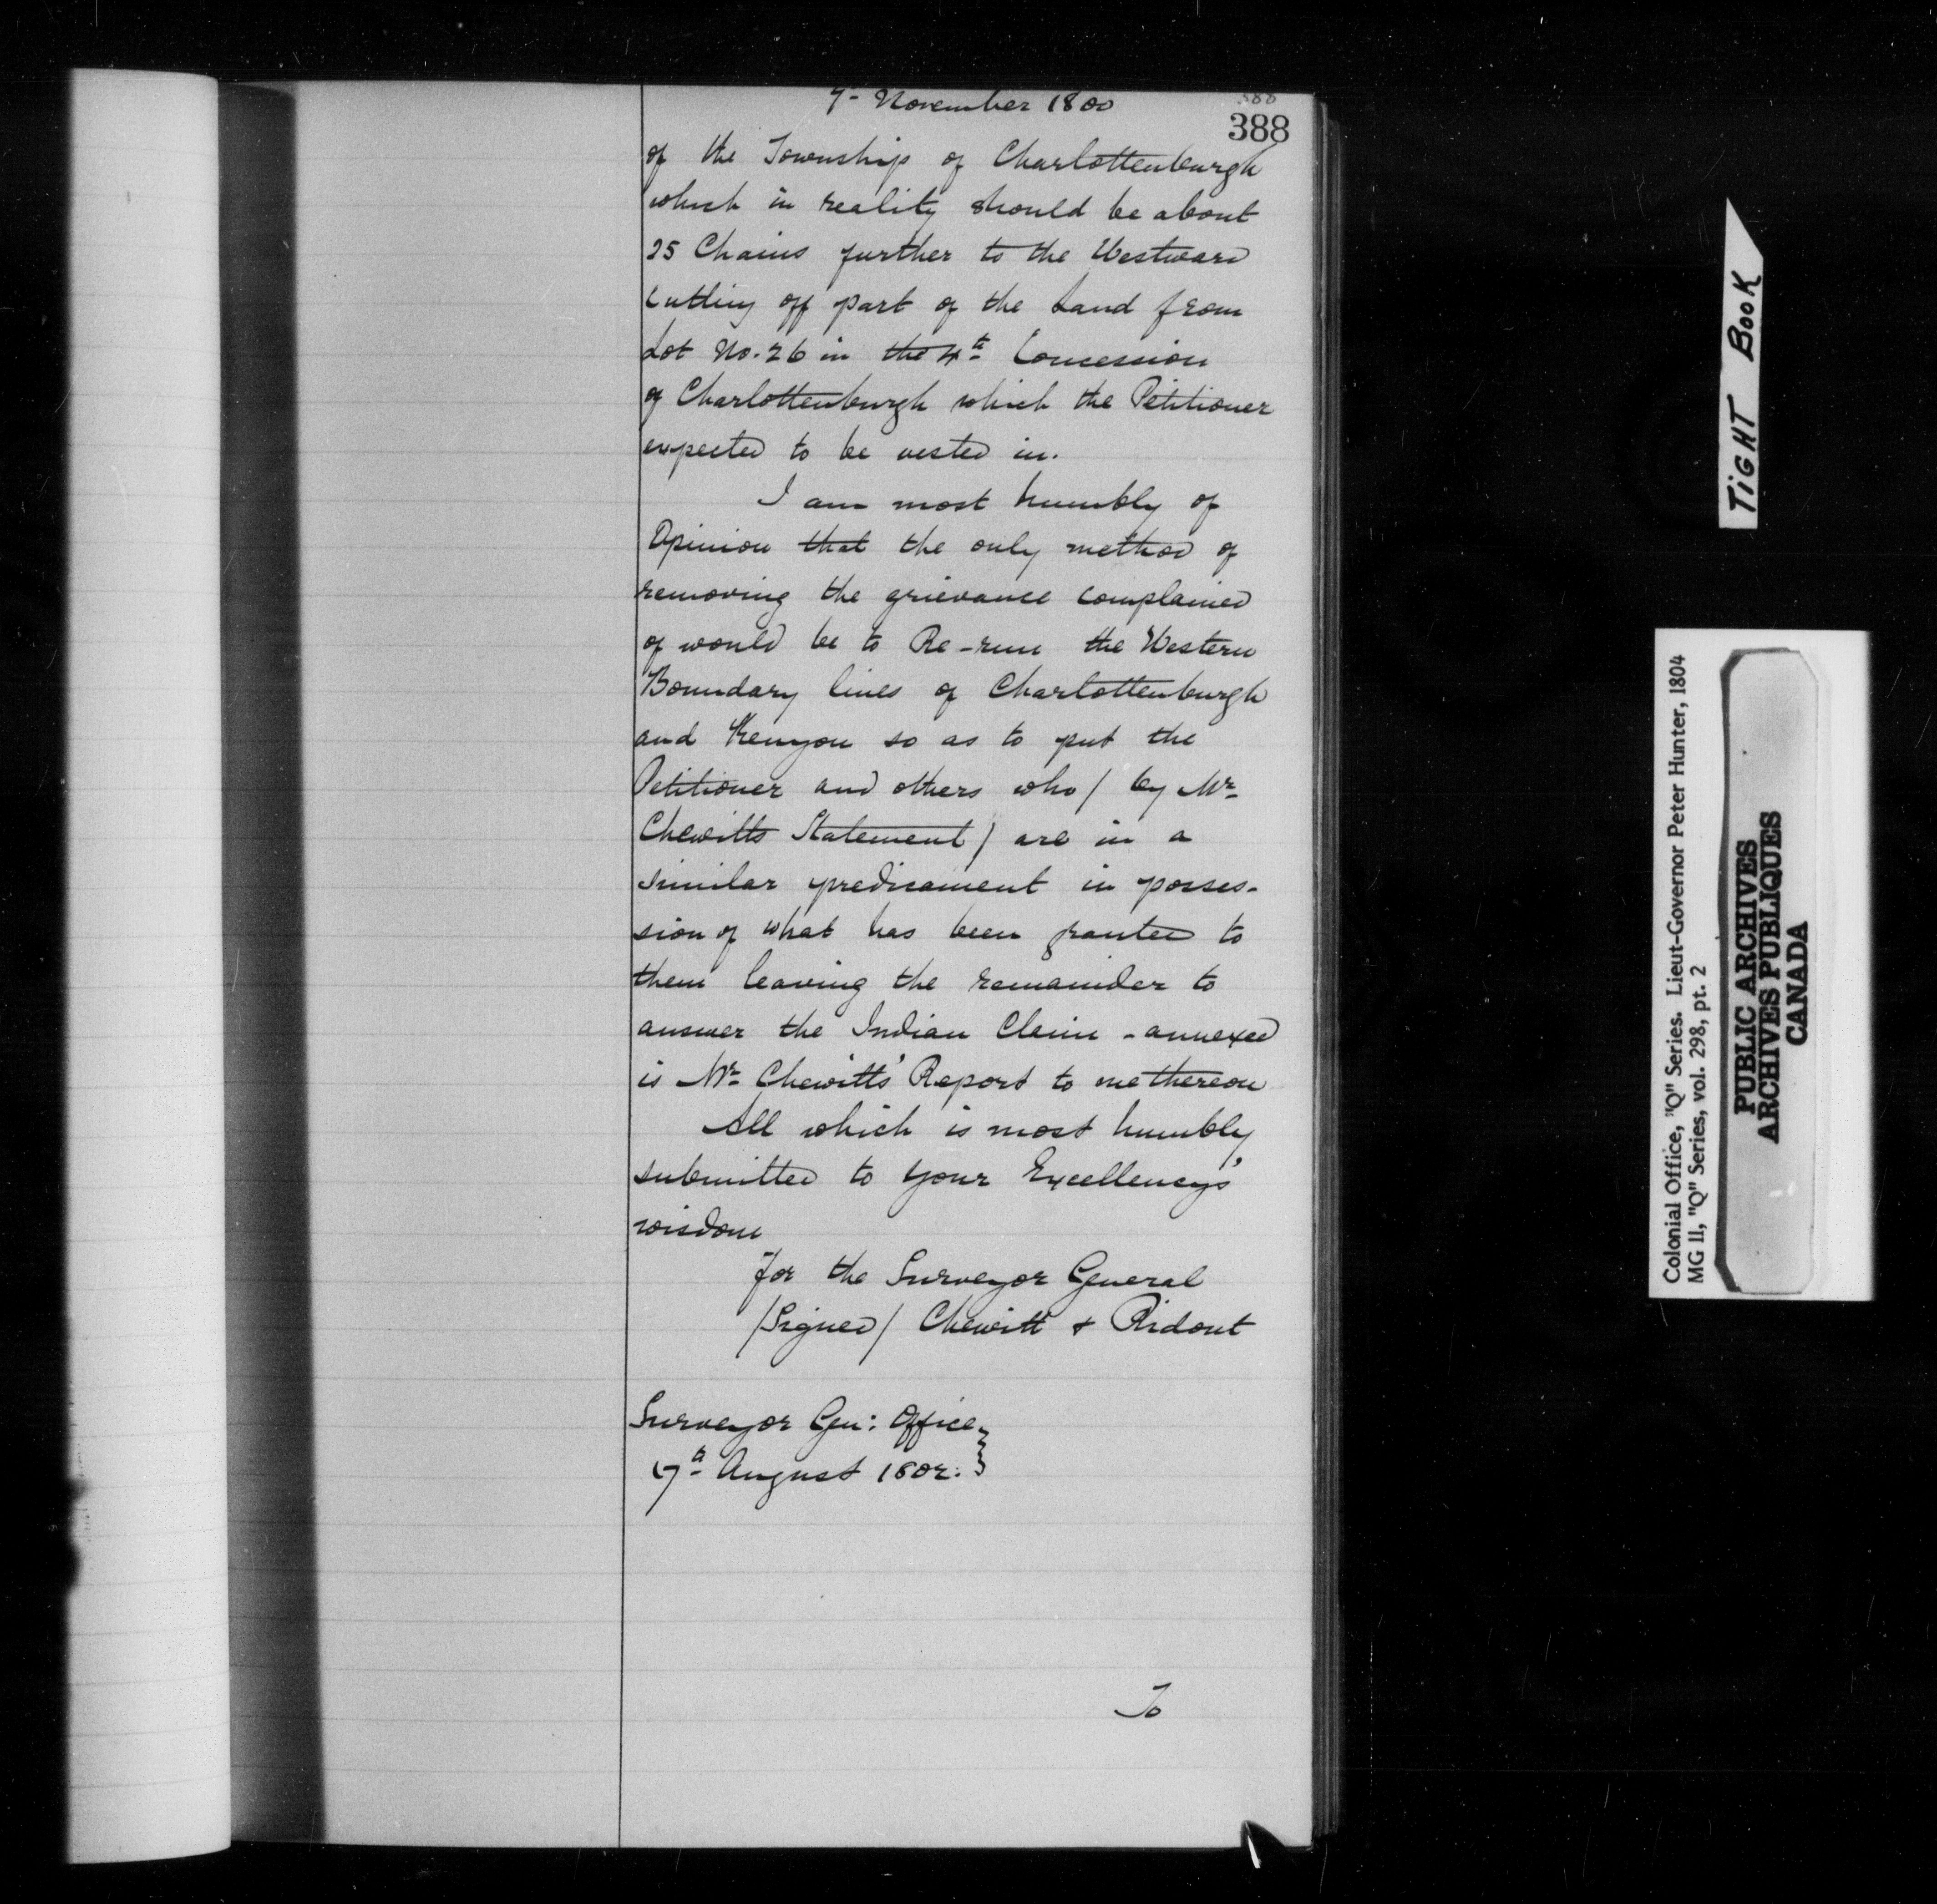 7- November 1800
388
388
of the Township of Charlottenburgh
which in reality should be about
25 Chains further to the Westward
Cutting off part of the Land from
Lot No. 26 in the 4th Concession
of Charlottenburgh which the Petitioner
expected to be vested in.
I am most humbly of
Opinion that the only method of
removing the grievance complained
of would be to Re-run the Western
Boundary lines of Charlottenburgh
and Kenyon so as to put the
Petitioner and others who / by Mr
Chewitts Statement / are in a
similar predicament in posses-
sion of what has been granted to
them leaving the remainder to
answer the Indian Claim - annexed
is Mr Chewitts' Report to me thereon
All which is most humbly
submitted to your Excellencys'
wisdom
For the Surveyor General
/Signed/ Chewitt & Ridout
Surveyor Gen: Office
17th August 1802.
To
TIGHT BOOK
Colonial Office, "Q" Series. Lieut-Governor Peter Hunter, 1804
MG 11, "Q" Series, vol. 298, pt. 2
PUBLIC ARCHIVES
ARCHIVES PUBLIQUES
CANADA